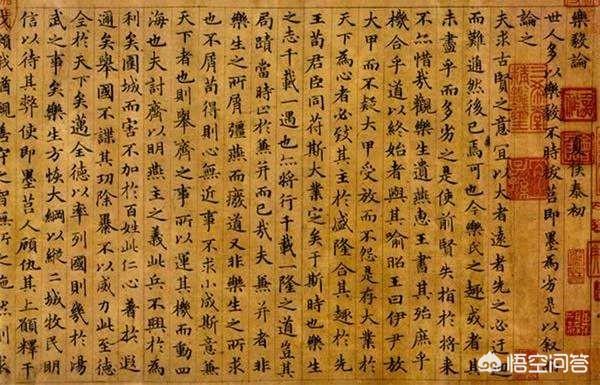 樂毅論 夏侯泰初
世人多以樂毅不時拔莒即墨為劣是以叙
論之
夫求古賢之意宜以大者遠者先之必迂迴
而難通然後已焉可也今樂氏之趣或者其
未盡乎而多劣之是使前賢失指於將来
不亦惜哉觀樂生遺燕惠王書其殆庶乎
機合乎道以終始者與其喻昭王曰伊尹放
大甲而不疑大甲受放而不怨是存大業於
天下為心者必致其主於盛隆合其趣於先
王苟君臣同符斯大業定矣于斯時也樂生
之志千載一遇也亦將行千載一隆之道豈其
局蹟當時止於兼并而已哉夫兼并者非
樂生之所屑彊燕而廢道又非樂生之所求
也不屑苟得則心無近事不求小成斯意兼
天下者也則舉齊之事所以運其機而動四
海也夫討齊以明燕主之義此兵不興於為
利矣圍城而害不加於百姓此仁心著於遐
邇矣舉國不謀其功除暴不以威力此至德
全於天下矣邁全德以率列國則幾於湯
武之事矣樂生方恢大綱以縱二城牧民明
信以待其弊使即墨莒人顧仇其上願釋干
猶親善守之智無所之施然則求
悟空问答